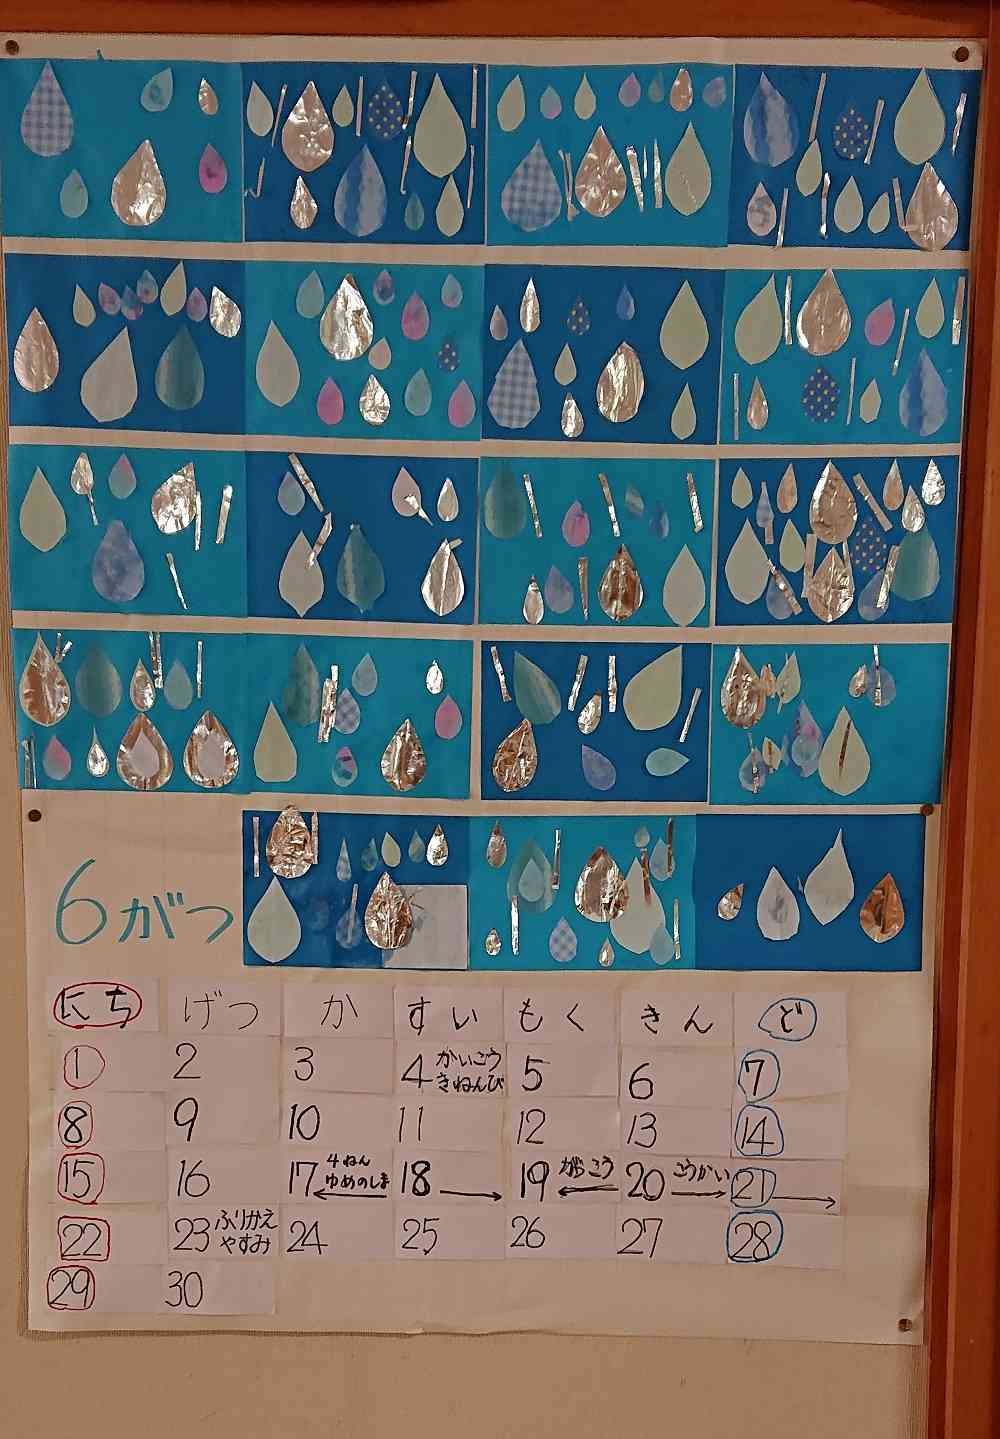 6がつ
にち げつ か すい もく きん ど
1 2 3 4 かいこう きねんび 5 6 7
8 9 10 11 12 13 14
15 16 17 4ねん ゆめのしま 18 19 がっこう 20 こうかい 21
22 23 ふりかえ やすみ 24 25 26 27 28
29 30